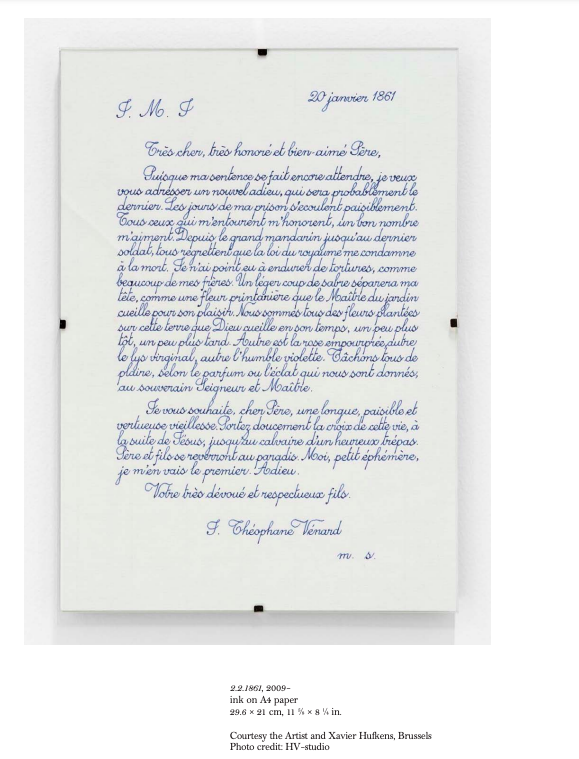 20 janvier 1861
J. M. J
Très cher, très honoré et bien-aimé Père,
Puisque ma sentence se fait encore attendre, je veux
vous adresser un nouvel adieu, qui sera probablement le
dernier. Les jours de ma prison s'écoulent paisiblement.
Tous ceux qui m'entourent m'honorent, un bon nombre
m'aiment. Depuis le grand mandarin jusqu'au dernier
soldat, tous regrettent que la loi du royaume me condamne
à la mort. Je n'ai point eu à endurer de tortures, comme
beaucoup de mes frères. Un léger coup de sabre séparera ma
tête, comme une fleur printanière que le Maître du jardin
cueille pour son plaisir. Nous sommes tous des fleurs plantées
sur cette terre que Dieu cueille en son temps, un peu plus
tôt, un peu plus tard. Autre est la rose empourprée, autre
le lys virginal, autre l'humble violette. Tâchons tous de
plaire, selon le parfum ou l'éclat qui nous sont donnés,
au souverain Seigneur et Maître.
Je vous souhaite, cher Père, une longue, paisible et
vertueuse vieillesse. Portez doucement la croix de cette vie, à
la suite de Jésus, jusqu'au calvaire d'un heureux trépas.
Père et fils se reverront au paradis. Moi, petit éphémère,
je m'en vais le premier. Adieu.
Votre très dévoué et respectueux fils.
J. Théophane Vénard
m. s.
2.2.1861, 2009–
ink on A4 paper
29.6 × 21 cm, 11 ⅝ × 8 ¼ in.
Courtesy the Artist and Xavier Hufkens, Brussels
Photo credit: HV-studio